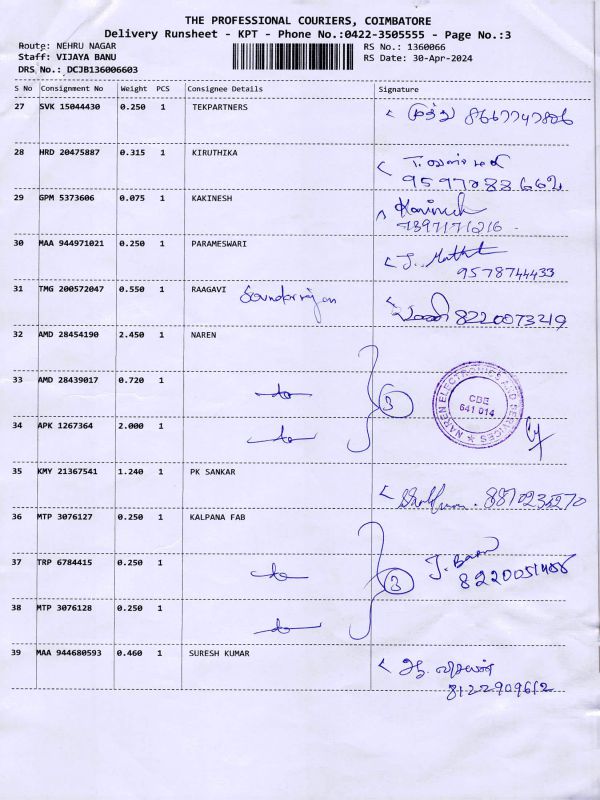 THE PROFESSIONAL COURIERS, COIMBATORE
Delivery Runsheet - KPT - Phone No.:0422-3505555 - Page No.:3
Route: NEHRU NAGAR RS No.: 1360066
Staff: VIJAYA BANU RS Date: 30-Apr-2024
DRS No.: DCJB136006603
S No Consignment No Weight PCS Consignee Details Signature
27 SVK 15044430 0.250 1 TEKPARTNERS
28 HRD 20475887 0.315 1 KIRUTHIKA
9597088662
29 GPM 5373606 0.075 1 KAKINESH
30 MAA 944971021 0.250 1 PARAMESWARI
9578744433
31 TMG 200572047 0.550 1 RAAGAVI Soundarrajan
8220073219
32 AMD 28454190 2.450 1 NAREN
33 AMD 28439017 0.720 1
3
NAREN ELECTRONICS AND SERVICES
CBE
641 014
34 APK 1267364 2.000 1
35 KMY 21367541 1.240 1 PK SANKAR
8870235270
36 MTP 3076127 0.250 1 KALPANA FAB
37 TRP 6784415 0.250 1
3
38 MTP 3076128 0.250 1
39 MAA 944680593 0.460 1 SURESH KUMAR
8122909612